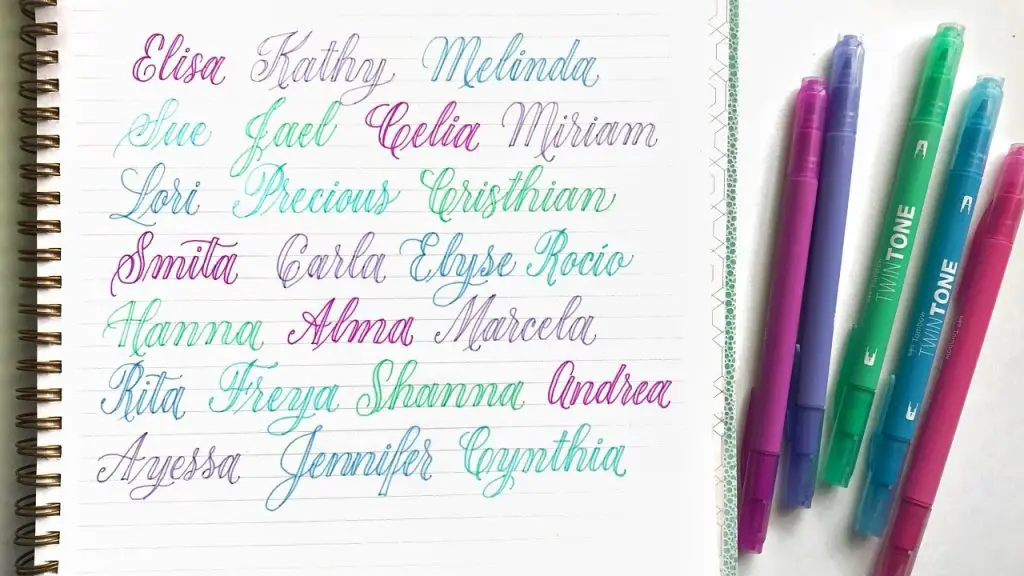 Elisa Kathy Melinda
Sue Jael Celia Miriam
Lori Precious Cristhian
Smita Carla Elyse Rocío
Hanna Alma Marcela
Rita Freya Shanna Andrea
Ayessa Jennifer Cynthia
TWINTONE
TWINTONE